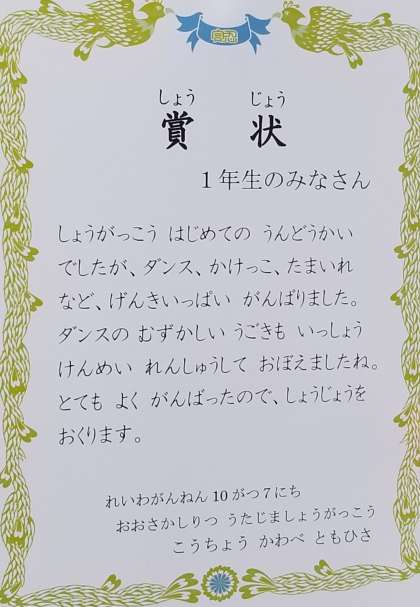 しょう じょう
賞状
1年生のみなさん
しょうがっこう はじめての うんどうかい
でしたが、ダンス、かけっこ、たまいれ
など、げんきいっぱい がんばりました。
ダンスの むずかしい うごきも いっしょう
けんめい れんしゅうして おぼえましたね。
とても よく がんばったので、しょうじょうを
おくります。
れいわがんねん 10 がつ 7 にち
おおさかしりつ うたじましょうがっこう
こうちょう かわべ ともひさ